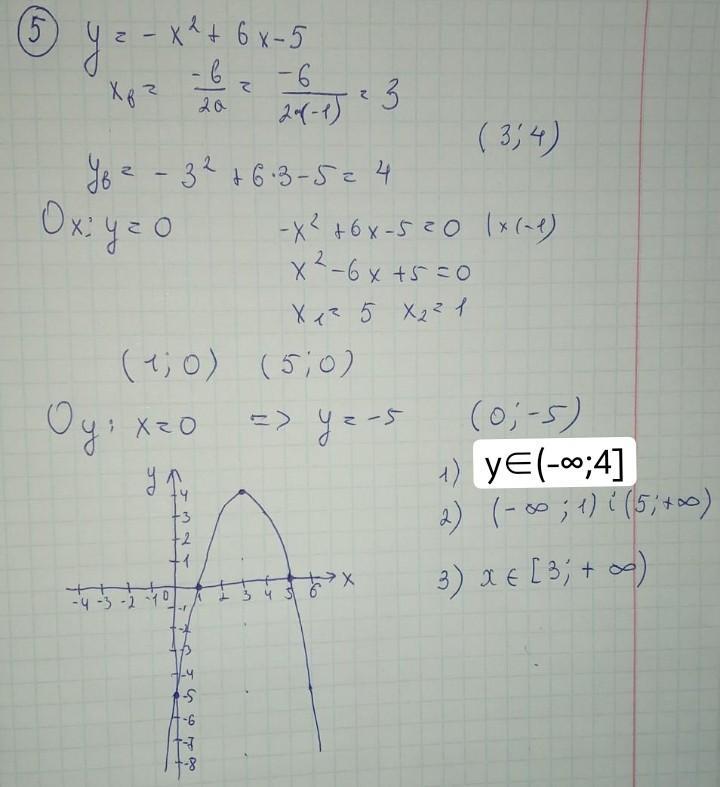 5 y = - x² + 6x - 5
xв = -b/2a = -6/2·(-1) = 3
(3; 4)
yв = - 3² + 6·3 - 5 = 4
Ox: y = 0 -x² + 6x - 5 = 0 |×(-1)
x² - 6x + 5 = 0
x₁ = 5 x₂ = 1
(1; 0) (5; 0)
Oy: x = 0 => y = -5 (0; -5)
1) y∈(-∞;4]
2) (-∞; 1) i (5; +∞)
3) x ∈ [3; + ∞)
y
4
3
2
1
-4 -3 -2 -1 0 1 2 3 4 5 6 x
-1
-2
-3
-4
-5
-6
-7
-8